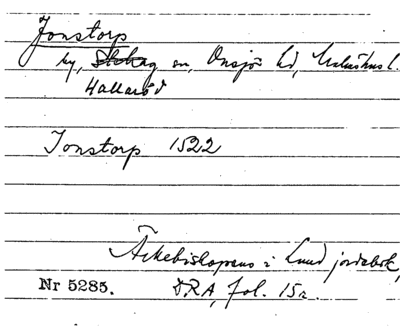 Jonstorp
by, sn, Onsjö hd, Malmöhus l.
Hallaröd
Jonstorp 1522
Ärkebiskopens i Lund jordebok,
Nr 5285. DRA, fol. 15r.